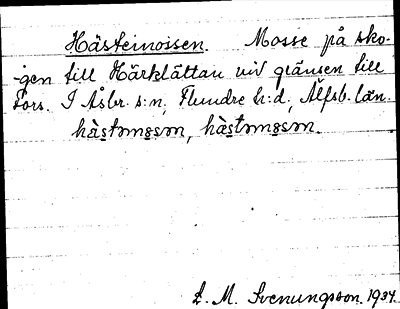 Hästemossen. Mosse på sko-
gen till Härklättau vid gränsen till
Fors. I Åsbr. s:n, Flundre h:d, Älfsb. län.
hàstəmɞsən, hàstəmɞsən.
L. M. Svenungsson. 1934.